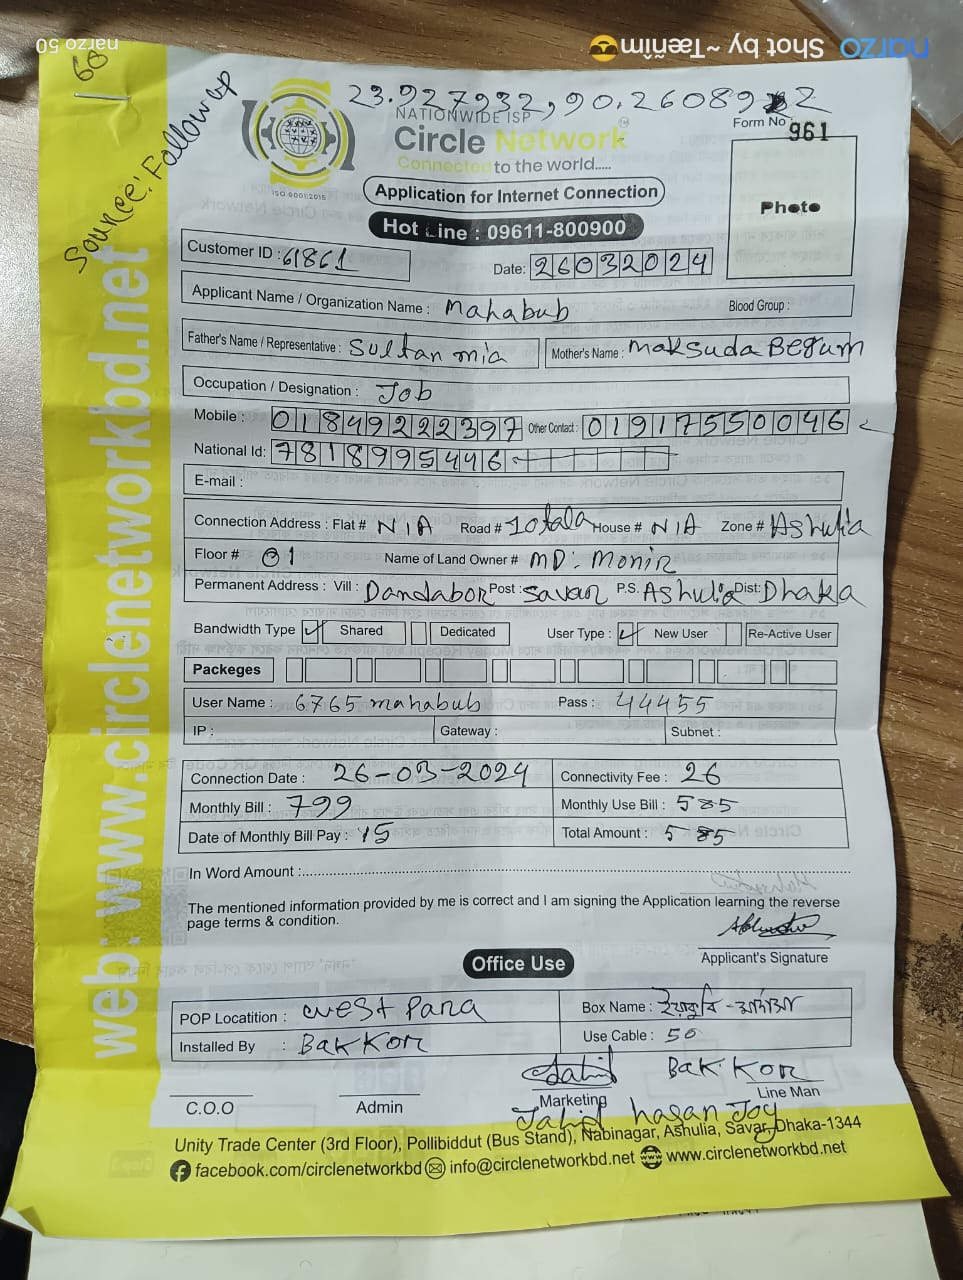 narzo Shot by ~ Tæñim
narzo 50
60
Source: Followup
23.927932, 90.260892
NATIONWIDE ISP
Circle Network
Connected to the world.....
ISO 9001:2015
Form No 961
Photo
Application for Internet Connection
Hot Line : 09611-800900
Customer ID : 61861
Date: 26032024
Applicant Name / Organization Name : Mahabub Blood Group :
Father's Name / Representative : Sultan mia Mother's Name : Maksuda Begum
Occupation / Designation : Job
Mobile : 01849222397 Other Contact : 01917550046
National Id: 7818995446
E-mail :
Connection Address : Flat # N/A Road # 10tala House # N/A Zone # Ashulia
Floor # 01 Name of Land Owner # MD: Monir
Permanent Address : Vill : Dandabor Post : Savar P.S. Ashulia Dist: Dhaka
Bandwidth Type ✓ Shared Dedicated User Type : ✓ New User Re-Active User
Packeges
User Name : 6765mahabub Pass : 44455
IP : Gateway : Subnet :
Connection Date : 26-03-2024 Connectivity Fee : 26
Monthly Bill : 799 Monthly Use Bill : 585
Date of Monthly Bill Pay : 15 Total Amount : 585
In Word Amount :
The mentioned information provided by me is correct and I am signing the Application learning the reverse
page terms & condition.
Applicant's Signature
Office Use
POP Locatition : West Para Box Name :
Installed By : Bakkor Use Cable : 50
Jahid Bakkor
C.O.O Admin Marketing Line Man
Jahid hasan Joy
Unity Trade Center (3rd Floor), Pollibiddut (Bus Stand), Nabinagar, Ashulia, Savar, Dhaka-1344
facebook.com/circlenetworkbd info@circlenetworkbd.net www.circlenetworkbd.net
web: www.circlenetworkbd.net